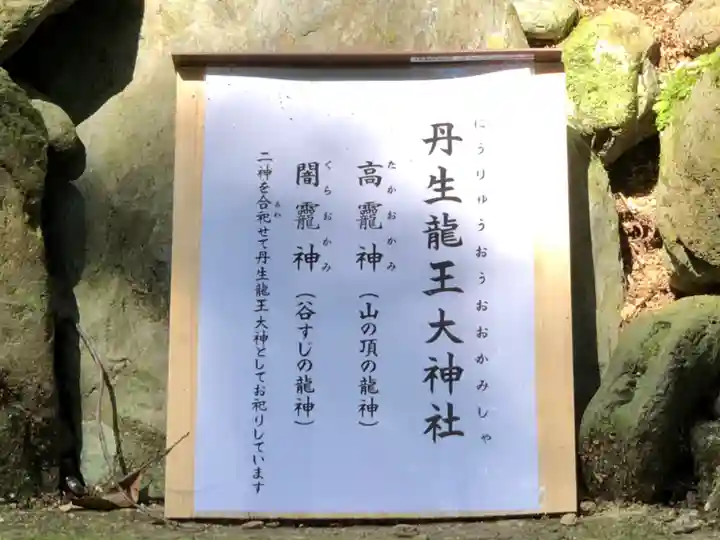 丹生龍王大神社
にうりゅうおうおおかみしゃ
高龗神(山の頂の龍神)
たかおかみ
闇龗神(谷すじの龍神)
くらおかみ
二神を合祀せて丹生龍王大神としてお祀りしています
あわ